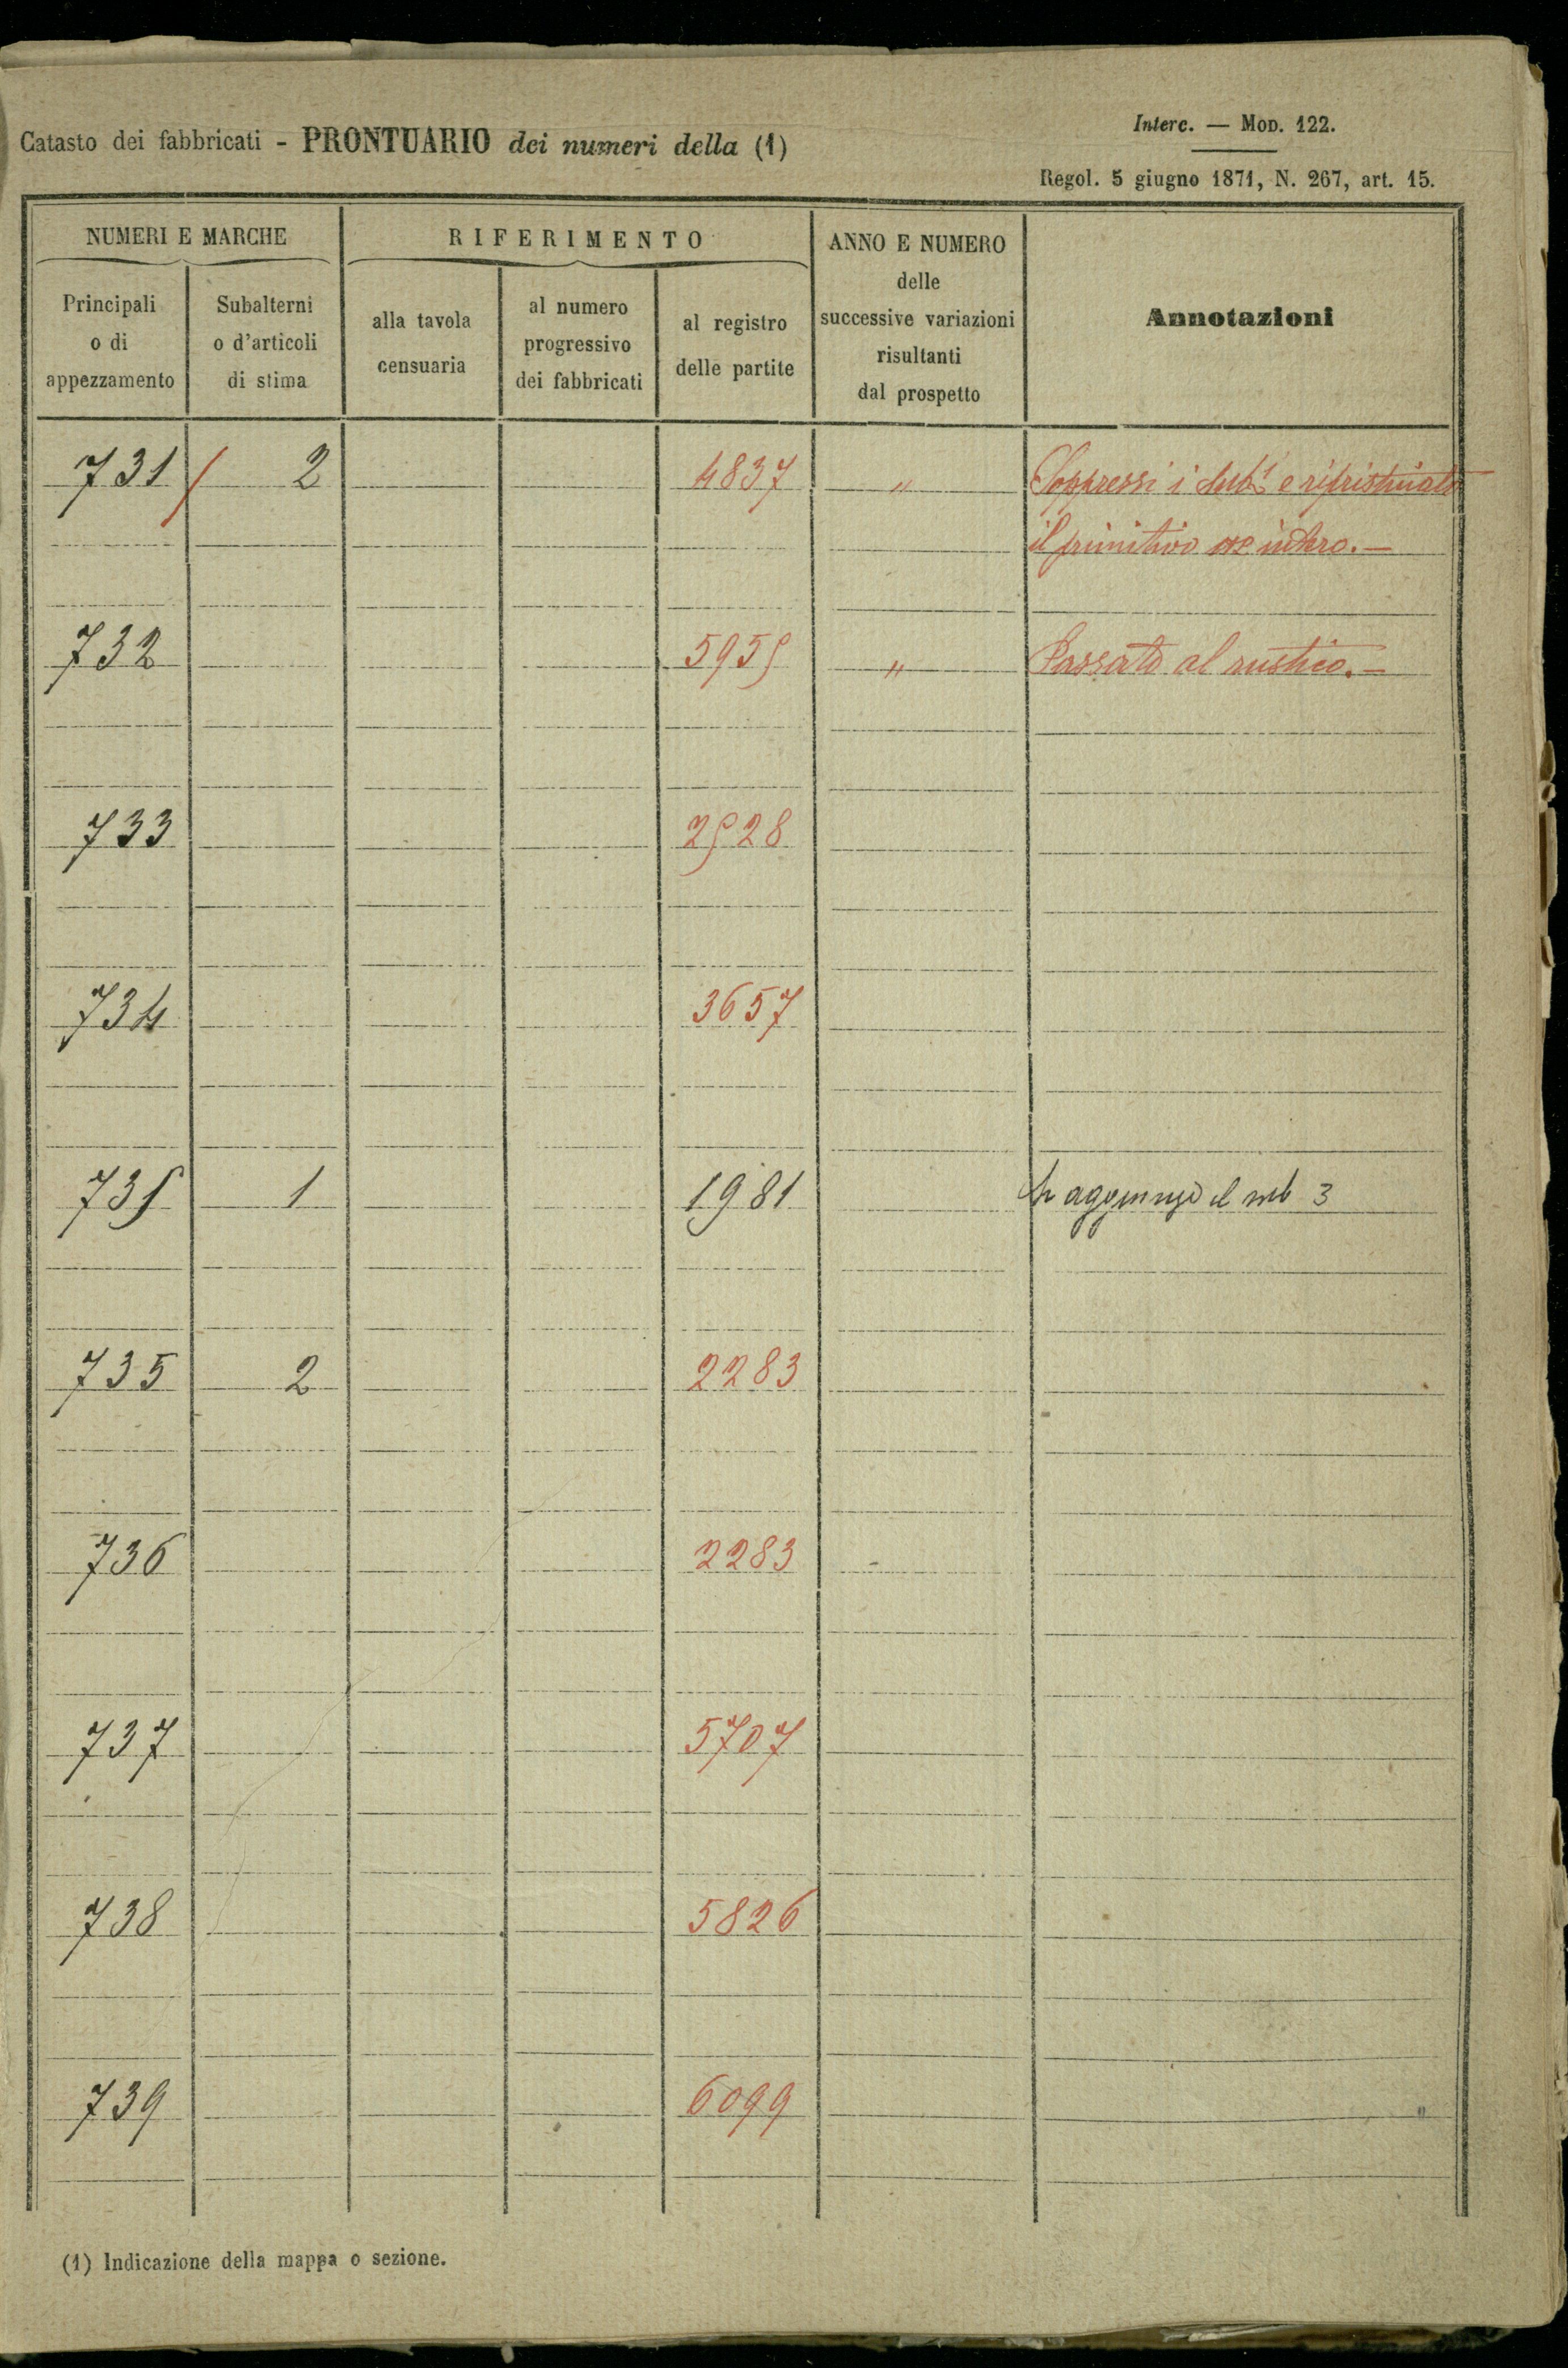 Catasto dei fabbricati - PRONTUARIO dei numeri della (1)
Interc. — Mod. 122.
Regol. 5 giugno 1871, N. 267, art. 15.
NUMERI E MARCHE
RIFERIMENTO
ANNO E NUMERO
delle
successive variazioni
risultanti
dal prospetto
Annotazioni
Principali
o di
appezzamento
Subalterni
o d'articoli
di stima
alla tavola
censuaria
al numero
progressivo
dei fabbricati
al registro
delle partite
731 / 2 4837 " Soppressi i sub.i e ripristinato
il primitivo intero.—
732 5955 " Passato al rustico.—
733 2528
734 3657
735 1 1981 Si aggiunge il sub 3
735 2 2283
736 2283
737 5707
738 5826
739 6099
(1) Indicazione della mappa o sezione.